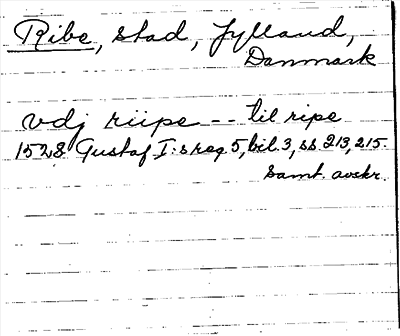 Ribe, stad, Jylland,
Danmark
vdj riipe -- til ripe
1528 Gustaf I:s reg. 5, bil. 3, ss. 213, 215.
samt. avskr.